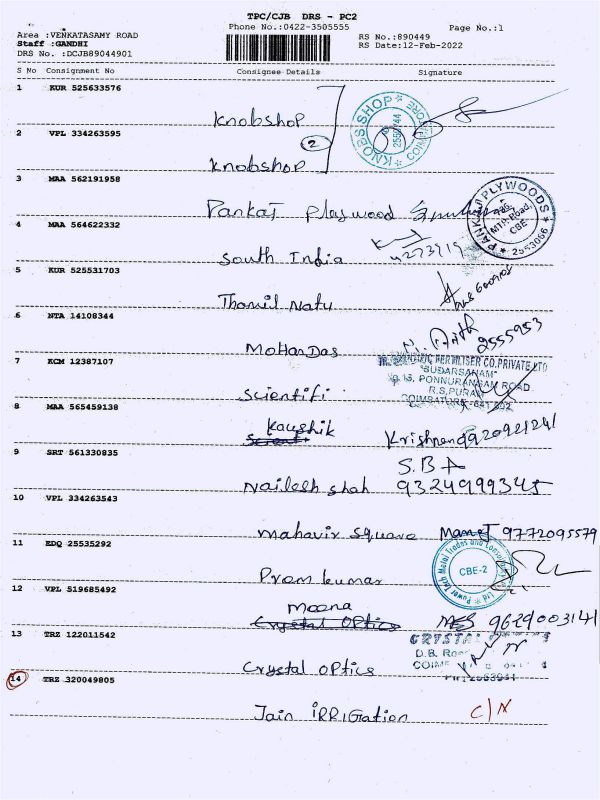 TPC/CJB DRS - PC2
Phone No.:0422-3505555
Page No.:1
Area :VENKATASAMY ROAD
Staff :GANDHI
DRS No. :DCJB89044901
RS No.:890449
RS Date:12-Feb-2022
S No Consignment No Consignee Details Signature
1 KUR 525633576
Knobshop
KNOBS SHOP
2
2 VPL 334263595
Knobshop
3 MAA 562191958
Pankaj Playwood
PANKAJ PLYWOODS
MTH Road,
CBE-
2553066
4 MAA 564622332
South India
5 KUR 525531703
Thamil Natu
6 NTA 14108344
MOHanDas
2555953
7 KCM 12387107
Scientifi
FERTILISER CO.PRIVATE LTD
"SUDARSANAM"
PONNURANGAM ROAD
R.S.PURAM
COIMBATORE-641 002
8 MAA 565459138
Kaushik
Krishnan 9920921241
9 SRT 561330835
S.B.A
Nailesh shah 9324999345
10 VPL 334263543
Mahavir Square Manoj 9772095579
11 EDQ 25535292
Prem kumar
Power Tech Metal Trades and Consultancy
Ltd
CBE-2
12 VPL 519685492
Meena
Crystal Optics
9629003141
13 TRZ 122011542
CRYSTAL
D.B. Road
Crystal optics
14 TRZ 320049805
Jain IRRIGation C/N